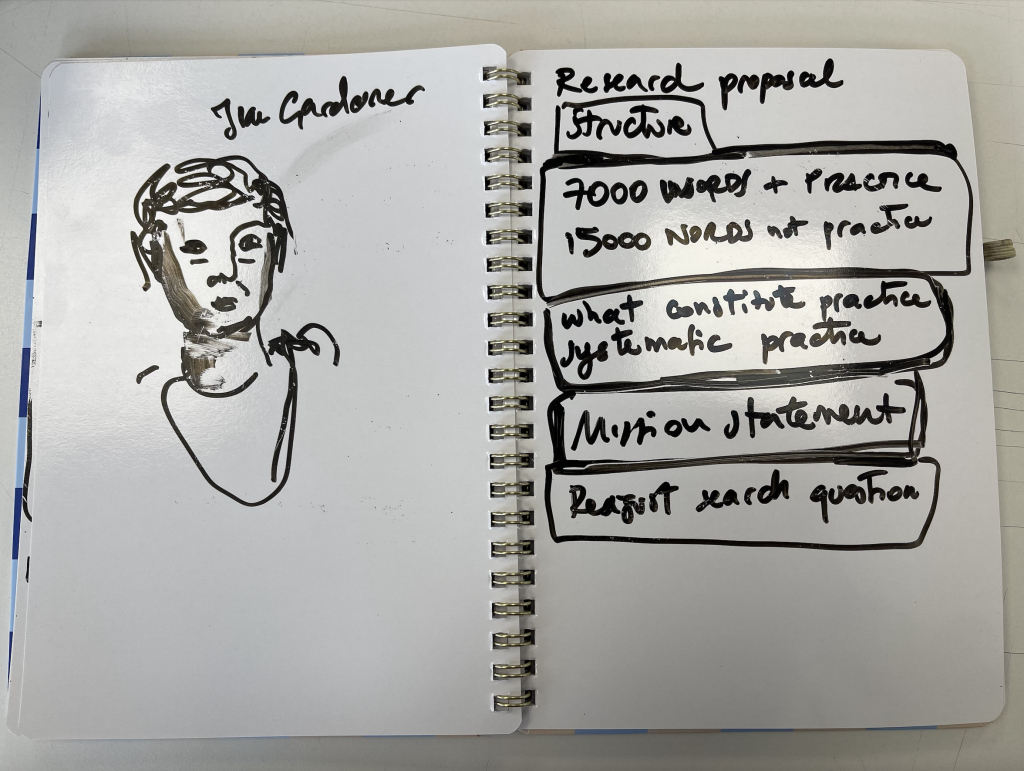 Jim Gardoner
Research proposal
Structure
7000 WORDS + PRACTICE
15000 WORDS not practice
what constitute practice
systematic practice
Mission statement
Readjust search question